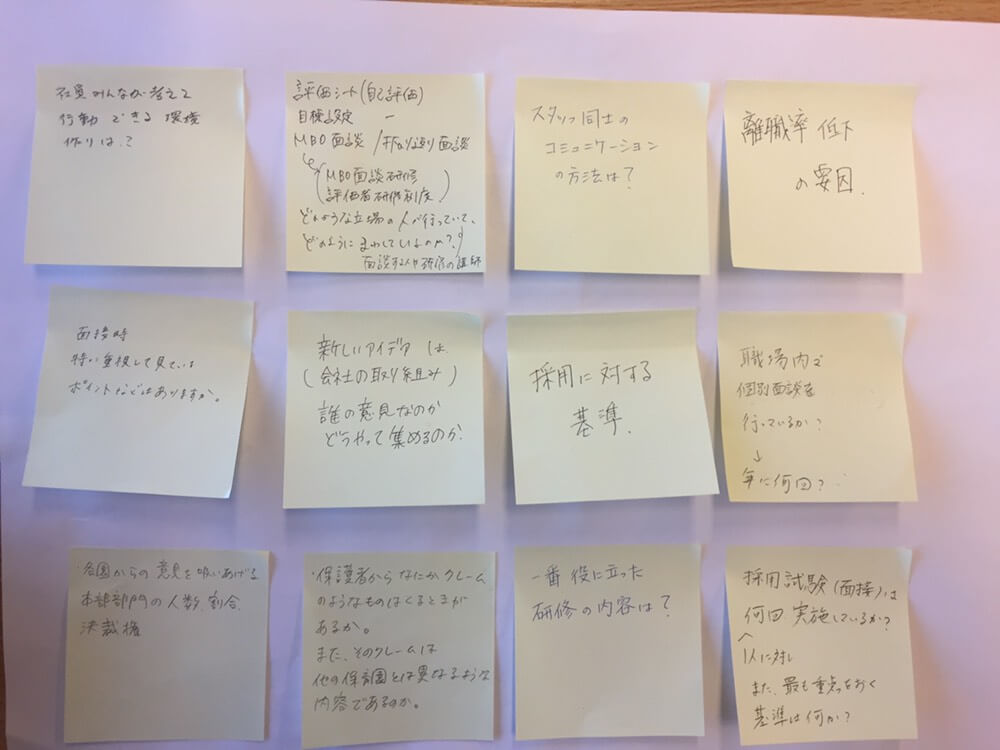 社員みんなが考えて
行動できる環境
作りは?
評価シート(自己評価)
目標設定 ー
MBO面談/振り返り面談
(MBO面談研修
評価者研修制度)
どのような立場の人が行っていて、
どのようにまわしているのか?
面談する人や研修の講師
スタッフ同士の
コミュニケーション
の方法は?
離職率低下
の要因.
面接時
特に重視して見ている
ポイントなどはありますか。
新しいアイデアは
(会社の取り組み)
誰の意見なのか
どうやって集めるのか.
採用に対する
基準.
職場内で
個別面談を
行っているか?
↓
年に何回?
・各園からの意見を吸いあげる
本部部門の人数、割合、
決裁権
・保護者からなにかクレーム
のようなものはくるときが
あるか。
また、そのクレームは
他の保育園とは異なるような
内容であるのか。
一番役に立った
研修の内容は?
採用試験(面接)は
何回実施しているか?
1人に対し
また、最も重点をおく
基準は何か?